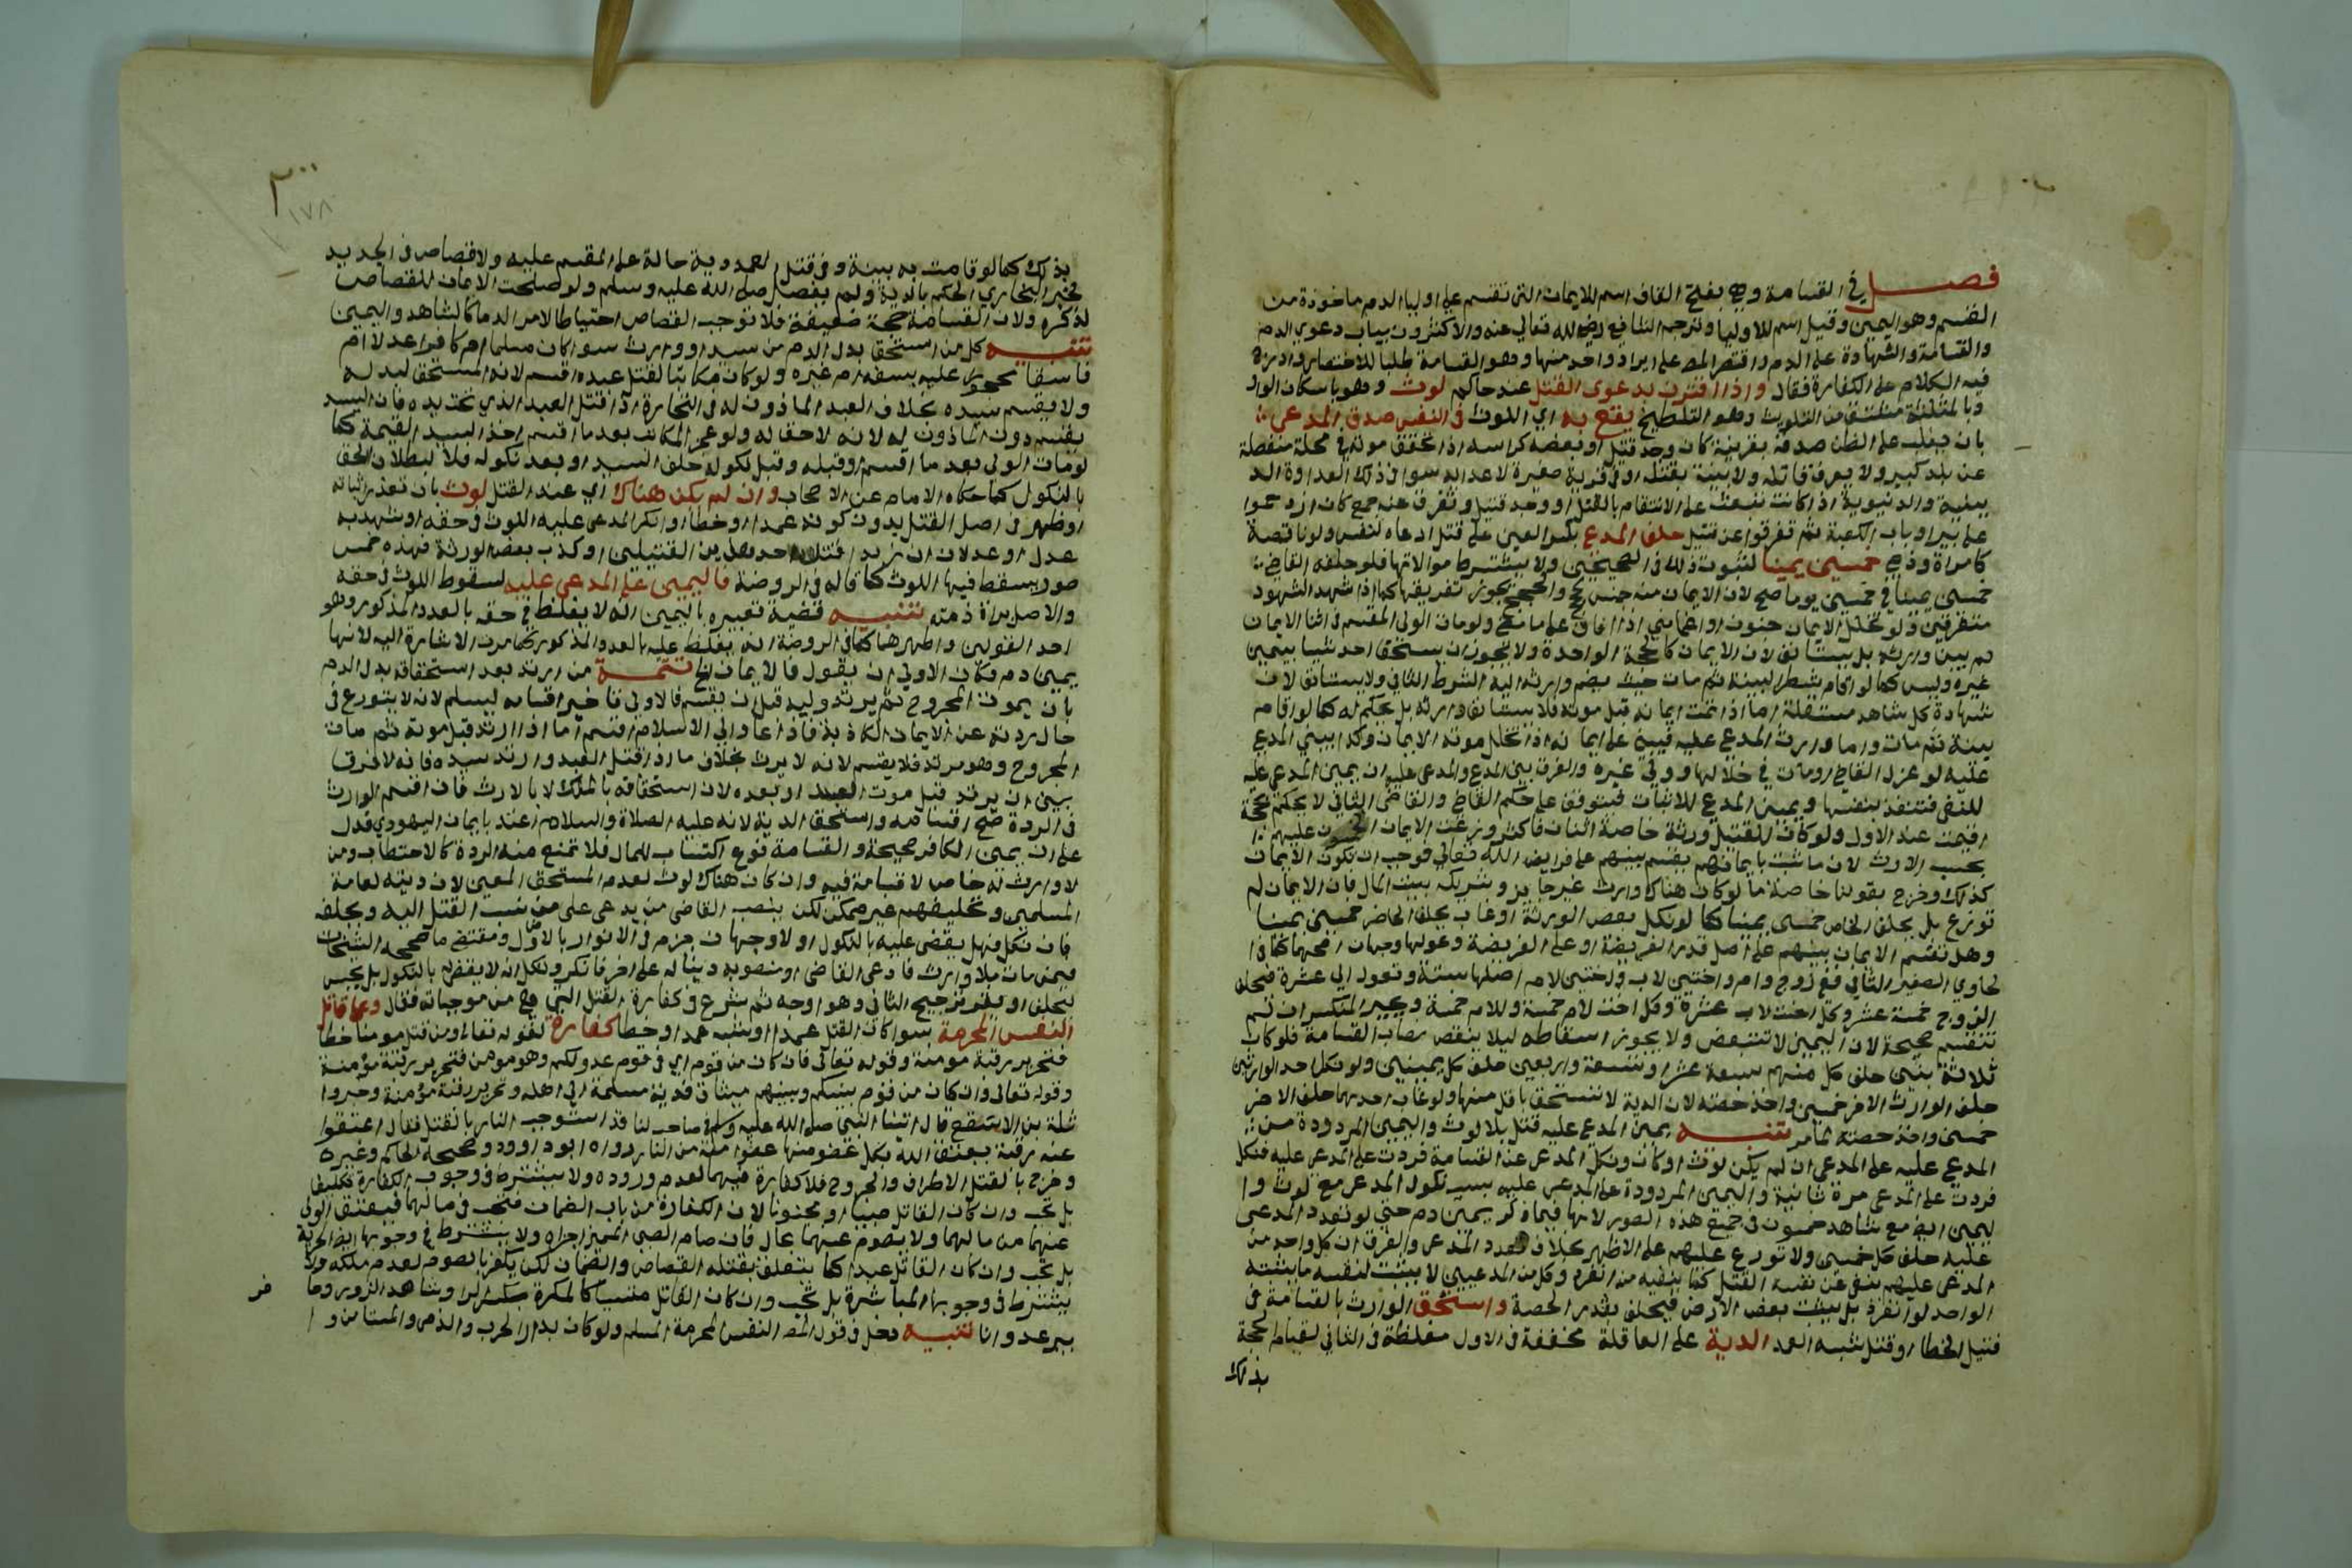 فصل في القسامة وهي بفتح القاف اسم للايمان التي تقسم على اوليا الدم ماخوذة من
القسم وهو اليمين وقيل اسم للاوليا وترجم الشافعي رضي الله تعالى عنه والاكثرون بباب دعوى الدم
والقسامة والشهادة على الدم واقتصر المص على ايراد واحد منها وهو القسامة طلبا للاختصار وادرج
فيه الكلام على الكفارة فقال واذا اقترن بدعوى القتل عند حاكم لوث وهو باسكان الواو
وبالمثلثة مشتق من التلويث وهو التلطيخ يقع به اي اللوث في النفس صدق المدعي
بان يغلب على الظن صدقه بقرينة كان وجد قتيل او بعضه كراسه اذا تحقق موته في محلة منفصلة
عن بلد كبير ولا يعرف قاتله ولا بينة بقتله او في قرية صغيرة لاعدايه سوا في ذلك العداوة الد
ينية والدنيوية اذا كانت تبعث على الانتقام بالقتل او وجد قتيل وتفرق عنه جمع كان ازدحموا
على بير او باب الكعبة ثم تفرقوا عن قتيل حلف المدعي بكسر العين على قتل ادعاه لنفس ولو ناقصة
كامراة وذمي خمسين يمينا لثبوت ذلك في الصحيحين ولا يشترط موالاتها فلو حلفه القاضي
خمسين يمينا في خمسين يوما صح لان الايمان من جنس الحجج والحجج يجوز تفريقها كما اذا شهد الشهود
متفرقين ولو تخلل الايمان جنون او اغما بنى اذا افاق على ما مضى ولو مات الولي المقسم في اثنا الايمان
لم يبن وارثه بل يستانف لان الايمان كالحجة الواحدة ولا يجوز ان يستحق احد شيا بيمين
غيره وليس كما لو اقام شطر البينة ثم مات حيث يضم وارثه اليه الشطر الثاني ولا يستانف لان
شهادة كل شاهد مستقلة اما اذا تمت ايمانه قبل موته فلا يستانف وارثه بل يحكم له كما لو اقام
بينة ثم مات واما وارث المدعى عليه فيبني على ايمانه اذا تخلل موته الايمان وكذا يبني المدعى
عليه لو عزل القاضي او مات في خلالها وولي غيره والفرق بين المدعي والمدعى عليه ان يمين المدعى عليه
للنفي فتنفذ بنفسها ويمين المدعي للاثبات فتتوقف على حكم القاضي والقاضي الثاني لا يحكم بحجة
اقيمت عند الاول ولو كان للقتيل ورثة خاصة اثنان فاكثر وزعت الايمان الخمسون عليهم
بحسب الارث لان ما ثبت بايمانهم يقسم بينهم على فرايض الله تعالى فوجب ان تكون الايمان
كذلك وخرج بقولنا خاصة ما لو كان هناك وارث غير حايز وشريكه بيت المال فان الايمان لم
توزع بل يحلف الخاص خمسين يمينا كما لو نكل بعض الورثة او غاب يحلف الحاضر خمسين يمينا
وهل تقسم الايمان بينهم على اصل قدر الفريضة او على الفريضة وعولها وجهان اصحهما كما في ا
لحاوي الصغير الثاني ففي زوج وام واختين لاب واختين لام اصلها ستة وتعول الى عشرة فيحلف
الزوج خمسة عشر وكل اخت لاب عشرة وكل اخت لام خمسة وللام خمسة ويجبر المنكسر ان لم
تنقسم صحيحة لان اليمين لا تتبعض ولا يجوز اسقاطه ليلا ينقص نصاب القسامة فلو كان
ثلاثة بنين حلف كل منهم سبعة عشر او تسعة واربعين حلف كل يمينين ولو نكل احد الوارثين
حلف الوارث الاخر خمسين واخذ حصته لان الدية لا تستحق باقل منها ولو غاب احدهما حلف الاخر
خمسين واخذ حصته كما مر تنبيه يمين المدعى عليه قتل بلا لوث واليمين المردودة من
المدعى عليه على المدعي ان لم يكن لوث او كان ونكل المدعي عن القسامة فردت على المدعى عليه فنكل
فردت على المدعي مرة ثانية واليمين المردودة على المدعى عليه بسبب نكول المدعي مع لوث وا
ليمين ايضا مع شاهد خمسون في جميع هذه الصور لانها فيما ذكر يمين دم حتى لو تعدد المدعى
عليه حلف كل خمسين ولا توزع عليهم على الاظهر بخلاف تعدد المدعي والفرق ان كل واحد من
المدعى عليهم ينفي عن نفسه القتل كما ينفيه من انفرد وكل من المدعيين لا يثبت لنفسه ما يثبته
الواحد لو انفرد بل يثبت بعض الارش فيحلف بقدر الحصة واستحق الوارث بالقسامة في
قتيل الخطا وقتل شبه العمد الدية على العاقلة مخففة في الاول مغلظة في الثاني لقيام الحجة
بذلك
٣٠٠
١٧٨
بذلك كما لو قامت به بينة وفي قتل العمد دية حالة على المقسم عليه ولا قصاص في الجديد
لخبر البخاري الحكم بالدية ولم يفصل صلى الله عليه وسلم ولو صلحت الايمان للقصاص
لذكره ولان القسامة حجة ضعيفة فلا توجب القصاص احتياطا لامر الدما كالشاهد واليمين
تنبيه كل من استحق بدل الدم من سيد او وارث سوا كان مسلما ام كافرا عدلا ام
فاسقا محجورا عليه بسفه ام غيره ولو كان مكاتبا لقتل عبده اقسم لانه المستحق لبدله
ولا يقسم سيده بخلاف العبد الماذون له في التجارة اذا قتل العبد الذي تحت يده فان السيد
يقسم دون الماذون له لانه لا حق له ولو عجز المكاتب بعد ما اقسم اخذ السيد القيمة كما
لو مات الولي بعد ما اقسم او قبله وقبل نكوله حلف السيد او بعد نكوله فلا لبطلان الحق
بالنكول كما حكاه الامام عن الاصحاب وان لم يكن هناك اي عند القتل لوث بان تعذر اثباته
او ظهر في اصل القتل بدون كونه عمدا او خطا او انكر المدعى عليه اللوث في حقه او شهد به
عدل او عدلان ان زيدا قتل احد هذين القتيلين او كذب بعض الورثة فهذه خمس
صور يسقط فيها اللوث كما قاله في الروضة فاليمين على المدعى عليه لسقوط اللوث في حقه
والاصل براة ذمته تنبيه قضية تعبيره باليمين انه لا يغلظ في حقه بالعدد المذكور وهو
احد القولين واظهرهما كما في الروضة انه يغلظ عليه بالعدد المذكور كما مرت الاشارة اليه لانها
يمين دم فكان الاولى ان يقول فالايمان الخ تتمة من ارتد بعد استحقاقه بدل الدم
بان يموت المجروح ثم يرتد وليه قبل ان يقسم فالاولى تاخير اقسامه ليسلم لانه لا يتورع في
حال ردته عن الايمان الكاذبة فاذا عاد الى الاسلام اقسم اما اذا ارتد قبل موته ثم مات
المجروح وهو مرتد فلا يقسم لانه لا يرث بخلاف ما اذا قتل العبد وارتد سيده فانه لا فرق
بين ان يرتد قبل موت العبد او بعده لان استحقاقه بالملك لا بالارث فان اقسم الوارث
في الردة صح اقسامه واستحق الدية لانه عليه الصلاة والسلام اعتد بايمان اليهودي فدل
على ان يمين الكافر صحيحة والقسامة نوع اكتساب للمال فلا تمنع منه الردة كالاحتطاب ومن
لا وارث له خاص لا قسامة فيه وان كان هناك لوث لعدم المستحق المعين لان ديته لعامة
المسلمين وتحليفهم غير ممكن لكن ينصب القاضي من يدعي على من ينسب القتل اليه ويحلفه
فان نكل فهل يقضى عليه بالنكول او لا وجهان جزم في الانوار بالاول ومقتضى ما صححه الشيخان
فيمن مات بلا وارث فادعى القاضي او منصوبه دينا له على اخر فانكر ونكل انه لا يقضى له بالنكول بل يحبس
ليحلف او يقر ترجيح الثاني وهو اوجه ثم شرع في كفارة القتل التي هي من موجباته فقال وعلى قاتل
النفس المحرمة سوا كان القتل عمدا او شبه عمد او خطا كفارة لقوله تعالى ومن قتل مومنا خطا
فتحرير رقبة مومنة وقوله تعالى فان كان من قوم اي في قوم عدو لكم وهو مومن فتحرير رقبة مؤمنة
وقوله تعالى وان كان من قوم بينكم وبينهم ميثاق فدية مسلمة الى اهله وتحرير رقبة مؤمنة وخبر وا
ثلة بن الاسقع قال اتينا النبي صلى الله عليه وسلم في صاحب لنا قد استوجب النار بالقتل فقال اعتقوا
عنه رقبة يعتق الله بكل عضو منها عضوا منه من النار رواه ابو داوود وصححه الحاكم وغيره
وخرج بالقتل الاطراف والجروح فلا كفارة فيهما لعدم وروده ولا يشترط في وجوب الكفارة تكليف
بل تجب وان كان القاتل صبيا او مجنونا لان الكفارة من باب الضمان فتجب في مالهما فيعتق الولي
عنهما من مالهما ولا يصوم عنهما بحال فان صام الصبي المميز اجزاه ولا يشترط في وجوبها ايضا الحرية
بل تجب وان كان القاتل عبدا كما يتعلق بقتله القصاص والضمان لكن يكفر بالصوم لعدم ملكه ولا
يشترط في وجوبها المباشرة بل تجب وان كان القاتل متسببا كالمكره بكسر الرا وشاهد الزور وحا
فر بير عدوانا تنبيه دخل في قول المص النفس المحرمة المسلم ولو كان بدار الحرب والذمي والمستامن وا